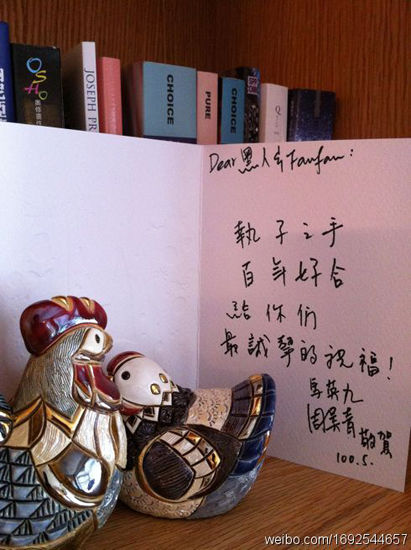 OSHO
JOSEPH
CHOICE
PURE
CHOICE
Dear 黑人&Fanfan:
執子之手
百年好合
給你們
最誠摯的祝福!
馬英九
周美青
敬賀
100.5.
weibo.com/1692544657